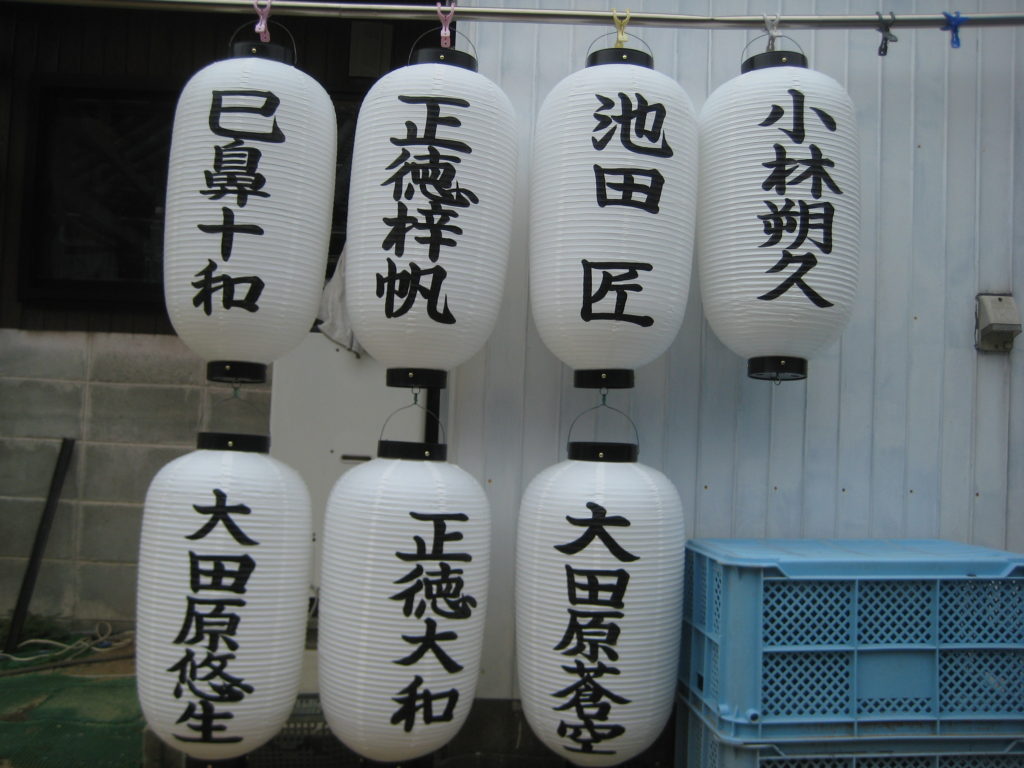 巳鼻十和
正徳梓帆
池田 匠
小林朔久
大田原悠生
正徳大和
大田原蒼空